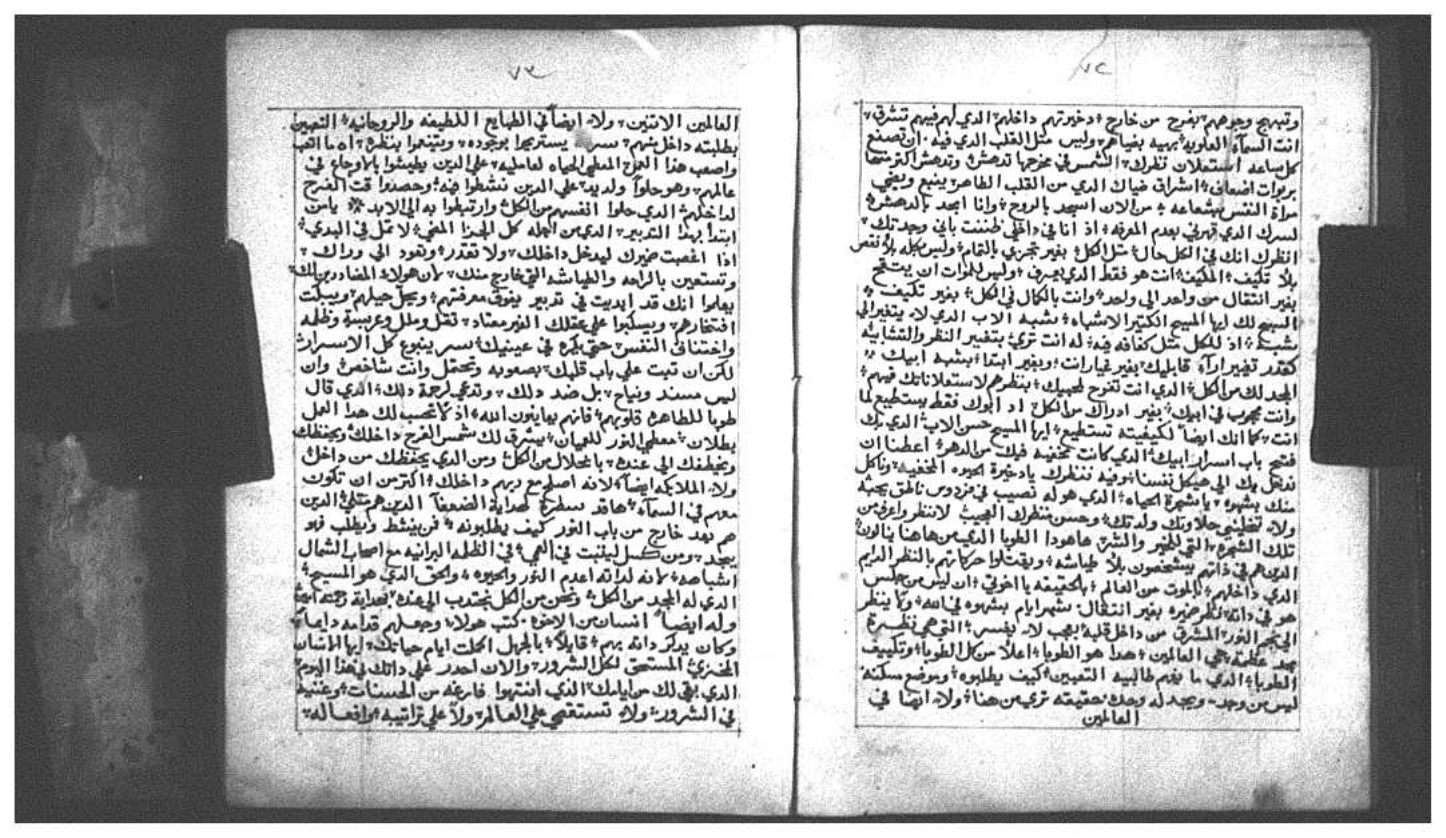 ٧٢
وتبهج وجوههم بفرح من خارج دخيرتهم داخلهم الدي لهم فيهم تشرق
انت السماء العلويه بهيه بضياهم وليس مثل القلب الدي فيه ان تصنع
كل ساعه استعلان نظرك الشمس في مخرجها تدهش وتدهش اكتر منها
بربوات اضعاف اشراق ضياك الدي من القلب الطاهر ينبع ويضي
مراة النفس بشعاعه من الان اسجد بالروح وانا ابجد بالدهش
لسرك الدي قهرني بعدم المعرفه اذ انا في داخلي ظننت باني وجدتك
انظرك انك في الكل حال مثل الكل بغير تجزي بالتمام وليس بكله بلا نقص
بلا تكليف المكيف انت هو فقط الدي يعرف وليس للموات ان يبتلع
بغير انتقال من واحد الي واحد وانت بالكمال في الكل بغير تكليف
السبح لك ايها المسيح الكتير الاشباه شبه الاب الدي لا يتغير الي
شبه اذ للكل مثل كفافه فيه له انت تري بتغيير النظر والتشابيه
كقدر تغيير اراء قابليك بغير غيارات وبغير ابتدا بشبه ابيك
المجد لك من الكل الدي انت تفرح لمحبيك بنظرهم لاستعلاناتك فيهم
وانت محجوب في ابيك بغير ادراك من الكل اد ابوك فقط يستطيع لما
انت كما انك ايضا لكيفيته تستطيع ايها المسيح حسن الاب الدي بك
فتح باب اسرار ابيك الدي كانت مخفيه فيك من الدهر اعطنا ان
ندخل بك الي هيكل نفسنا وفيه ننظرك يا دخيرة الحيوه المخفيه وناكل
منك بشهوه يا شجرة الحياه الدي هو له نصيب في فردوس ناطق يحبه
ولا تخليني حلاوتك ولدتك وحسن منظرك العجيب لاننظر واعرف من
تلك الشجره التي للخير والشر هاهودا الطوبا الدي من هاهنا ينالون
الدين هم في داتهم يتنعمون بلا طياشه وبقتلوا حركاتهم بالنظر الدايم
الدي داخلهم بالموت من العالم بالحقيقه يا اخوتي ان ليس من جلس
هو في داته نظر ضميره بغير انتقال شهر ايام بشهوه في الله ولا ينظر
الي فجر النور المشرق من داخل قلبه بعجب لا يفسر التي هي نظرة
مجد عظمة محي العالمين هدا هو الطوبا اعلا من كل الطوبا وتكييف
الطوبا الدي ما يفهم طالبيه التعبين كيف يطلبوه وموضع سكنه
ليس من وجد ويجد له وحدك حقيقته تري من هنا ولا ايضا في
العالمين
٧٣
العالمين الاتنين ولا ايضا في الطبايع اللطيفه والروحانيه التعبين
بطلبته داخل منهم يستريحوا بوجوده ويتنعموا بنظره اه ما اتعب
واصعب هدا العمل المعطي الحياه لعامليه علي الدين يطيشوا بالاوجاع في
عالمهم وهو حلوا ولديد علي الدين نشطوا فيه وحصدوا قت الفرح
لداخلهم الدي حلوا انفسهم من الكل وارتبطوا به الي الابد يامن
ابتدا بهدا التدبير الدي من اجله كل الجزا المعني لا تمل في البدي
اذا اغصبت ضميرك ليدخل داخلك ولا تقدر وتعود الي وراك
وتستعين بالراحه والطياشه التي خارج منك لان هولاء المضاددين لك
يعلموا انك قد ابديت في تدبير يفوق معرفتهم ويحل حيلهم ويبكت
افتخارهم ويسكبوا علي عقلك الغير معتاد تقل وملل وعربسة وظلمه
واختناق النفس حتي يكره في عينيك سر ينبوع كل الاسرار
لكن ان تبت علي باب قلبك بصعوبه وتحتمل وانت شاخص وان
ليس مسند ونياح بل ضد دلك وتدعي لرحمة دلك الدي قال
طوبا للطاهره قلوبهم فانهم يعاينون الله اذ لا تحسب لك هدا العمل
بطلان معطي النور للعميان يشرق لك شمس الفرح داخلك ويحفظك
ويخطفك الي عنده بانحلال من الكل ومن الدي يحفظك من داخل
ولا الملايكه ايضا لانه اصلح مع ربهم داخلك اكتر من ان تكون
معهم في السماء هاقد سطرة لهداية الضعفا الدين هم متلي الدين
هم بعد خارج من باب النور كيف يطلبونه فمن ينشط ويطلب فهو
يجد ومن كسل ليتبت في العمي في الظلمه البرانيه مع اصحاب الشمال
اشباهه لانه لداته اعدم النور والحيوه والحق الدي هو المسيح
الدي له المجد من الكل ونحن من الكل نجتدب الي عنده بهداية رحمته امين
وله ايضا انسان من الاخوه كتب هولاء وجعلهم قدامه دايما
وكان يدكر داته بهم قايلا بالجهل اكملت ايام حياتك ايها الانسان
المخزي المستحق لكل الشرور والان احدر علي داتك في هدا اليوم
الدي بقي لك من ايامك الدي انتهوا فارغه من الحسنات وغنيه
في الشرور ولا تستقصي علي العالم ولا علي تراتيبه وافعاله